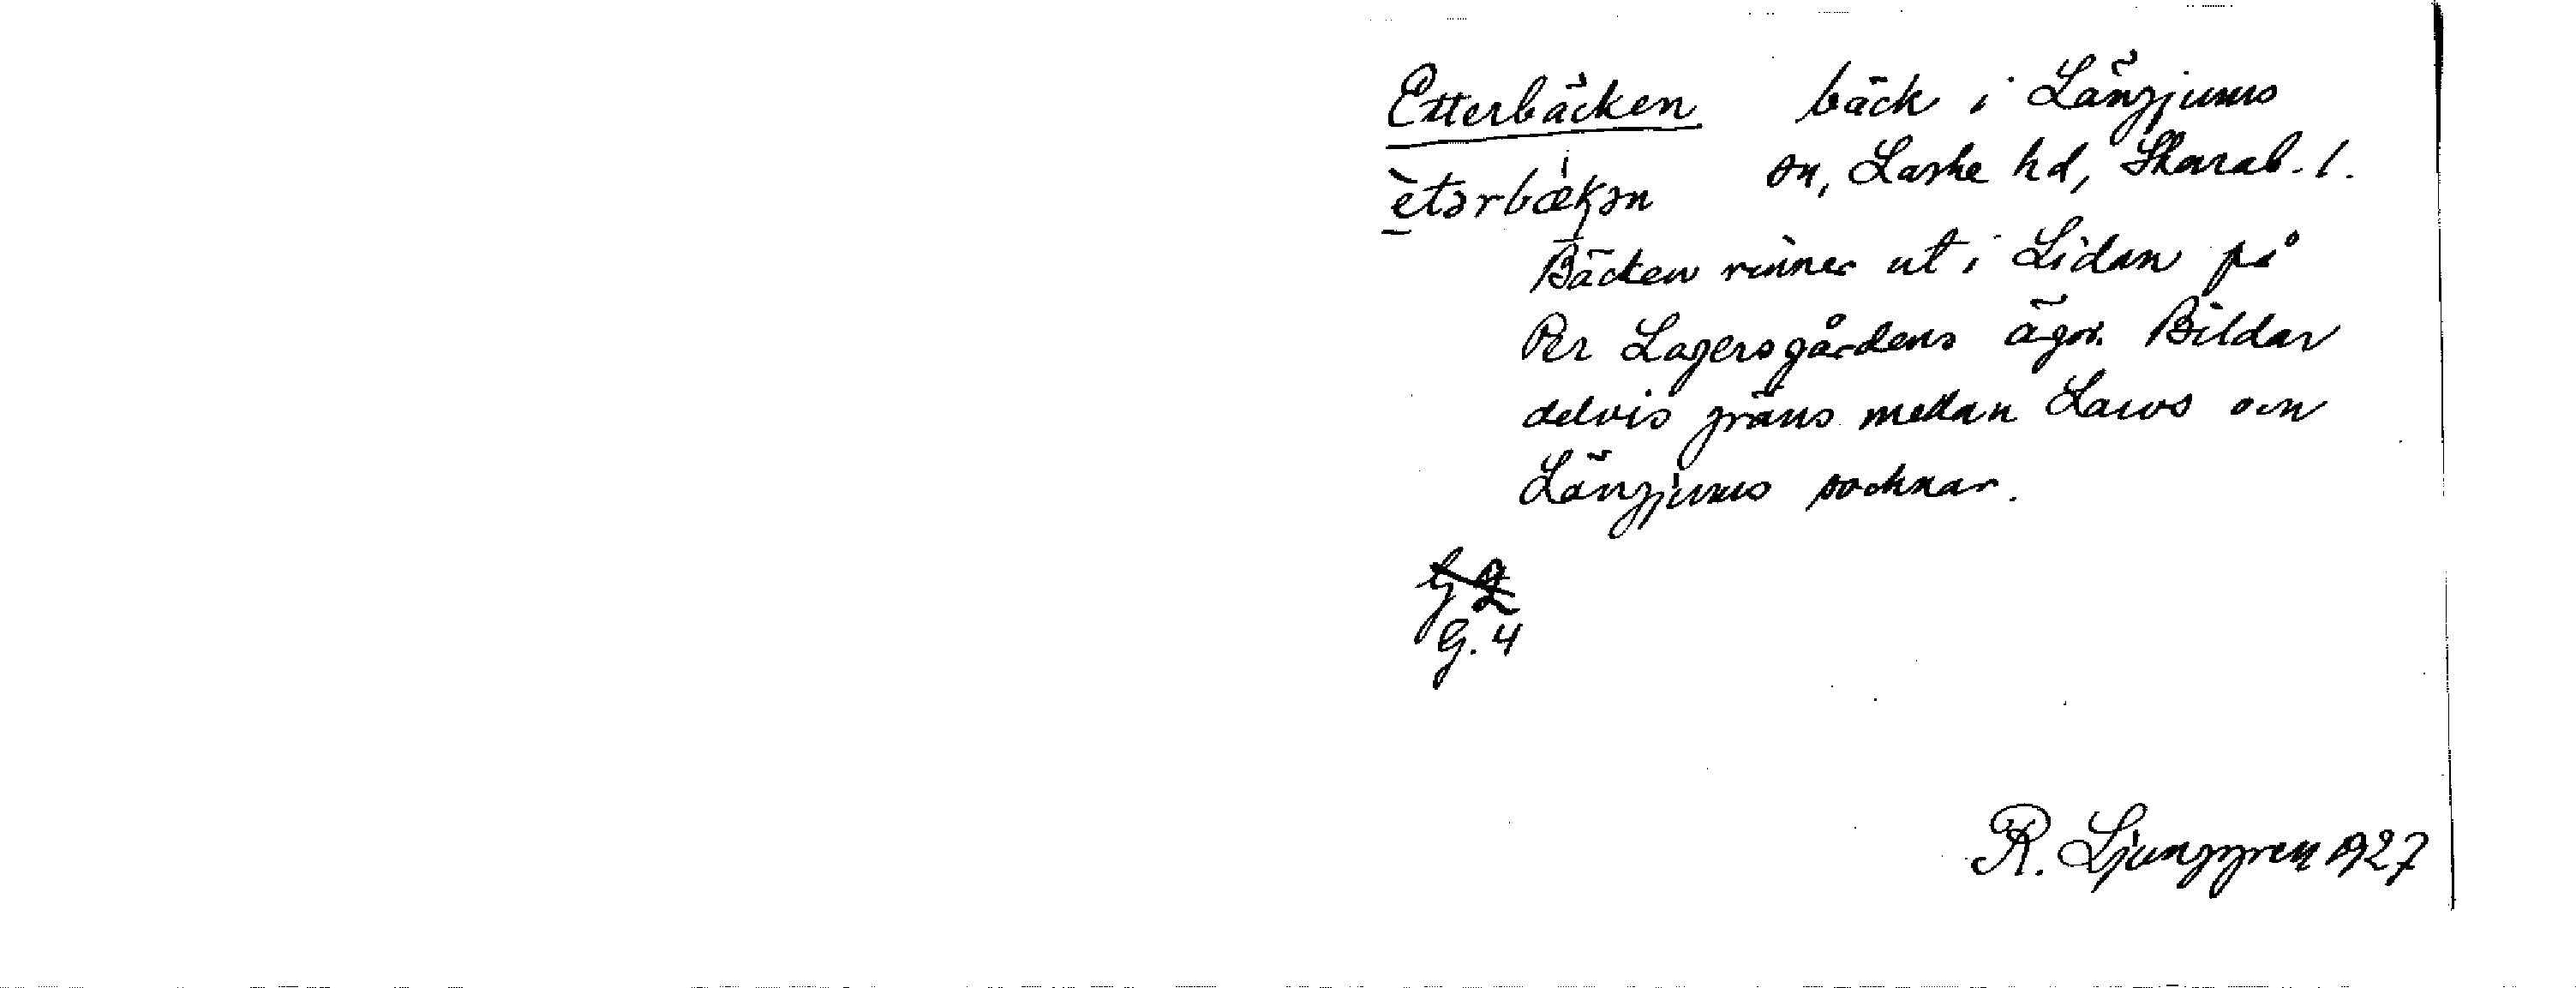 Etterbäcken bäck i Längjums
sn, Laske hd, Skarab. l.
ètərbækən
Bäcken rinner ut i Lidan på
Per Lagersgårdens ägor. Bildar
delvis gräns mellan Larvs och
Längjums socknar.
G 2
G. 4
R. Ljunggren 1927